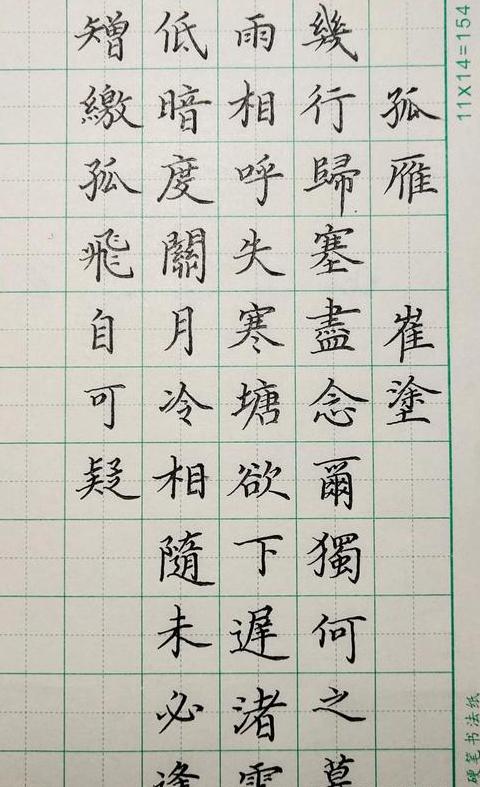 孤雁 崔塗
幾行歸塞盡念爾獨何之暮
雨相呼失寒塘欲下遲渚雲
低暗度關月冷相隨未必逢
矰繳孤飛自可疑
11X14=154
硬笔书法纸